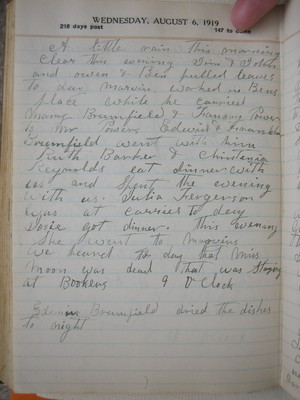 WEDNESDAY, AUGUST 6, 1919
218 days past 147 to come
A little rain this morning
Clear this evening Jim & John
and owen & Ben pulled leaves
to day Marvin worked in Bens
place while he carried
Mary Brumfield & Franony Powers
to Mr Powers Edwin & Franklin
Brumfield went with him
Ruth Barker & Christenia
Reynolds eat dinner with
us and Spent the evening
With us. Julia Fergerson
was at Carries to day
Josie got dinner. this evening
She went to Marvins
We heard to day that Miss
Moon was dead that was Staying
at Bookers 9 O Clock
Edwin Brumfield dried the dishes
to night